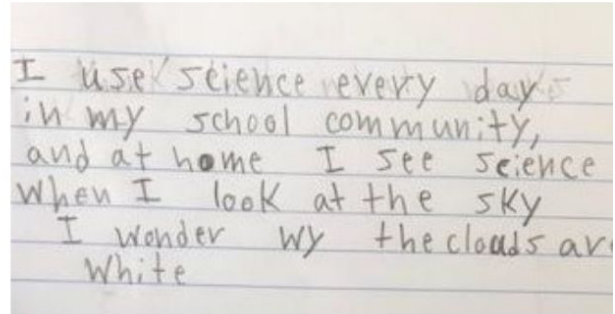 I use science every day
in my school community,
and at home I see science
when I look at the sky
I wonder wy the clouds are
White